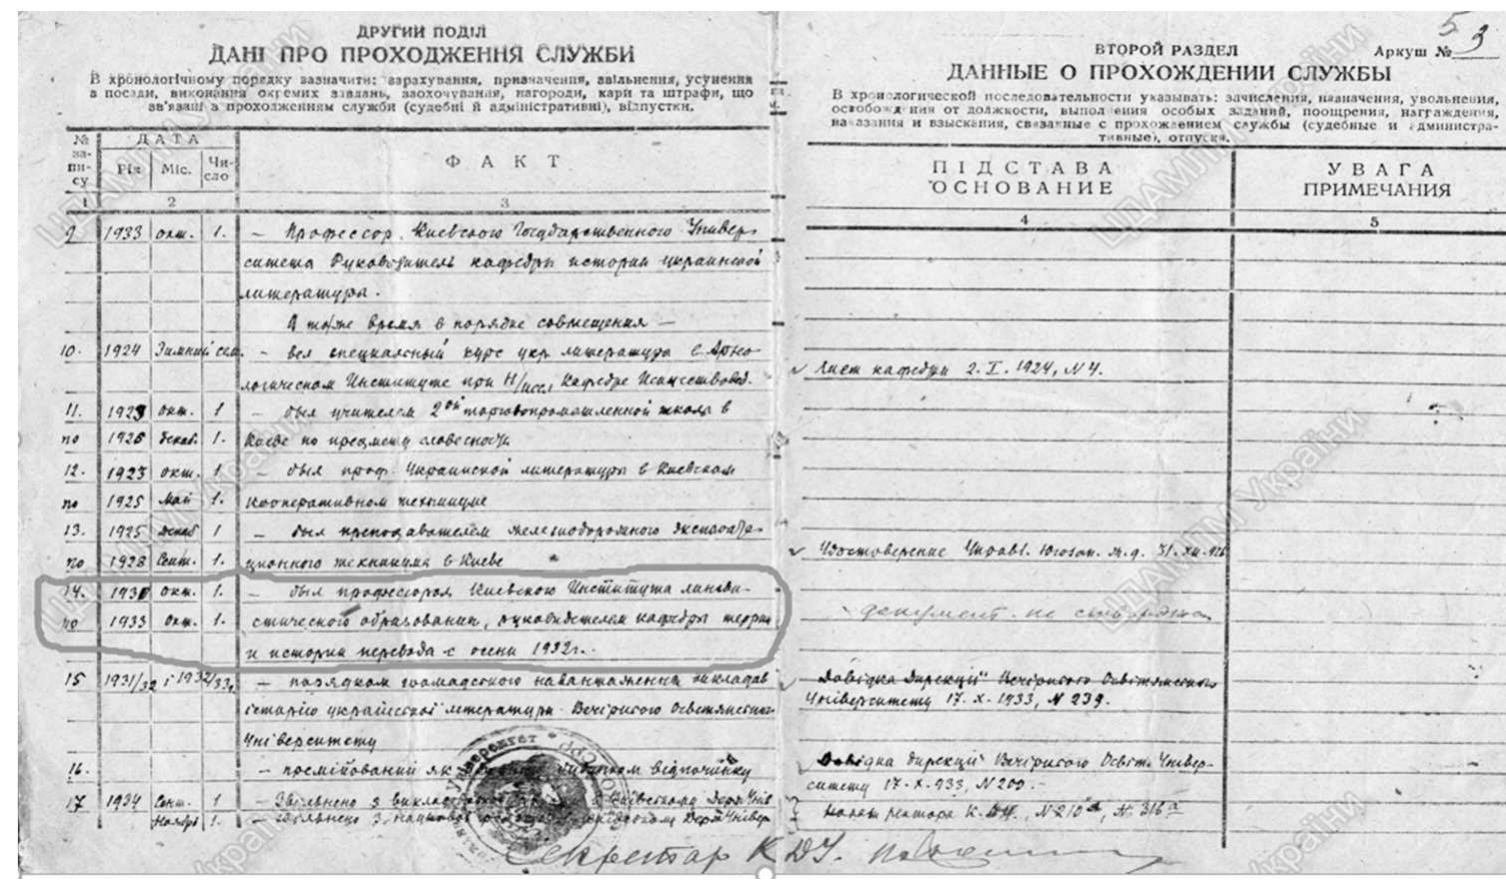 ДРУГИЙ ПОДІЛ
ДАНІ ПРО ПРОХОДЖЕННЯ СЛУЖБИ
В хронологічному порядку зазначити: зарахування, призначення, звільнення, усунення
з посади, виконання окремих завдань, заохочування, нагороди, кари та штрафи, що
зв'язані з проходженням служби (судебні й адміністративні), відпустки.
№ запису
ДАТА
Рік Міс. Число
ФАКТ
1 2 3
9 1933 окт. 1. — Профессор Киевского Государственного Универ-
ситета Руководитель кафедры истории украинской
литературы.
В то же время в порядке совмещения —
10. 1924 Зимний сем. — вел специальный курс укр. литературы в Архео-
логическом Институте при Н/иссл. Кафедре Искусствовед.
11. 1923 окт. 1 — был учителем 2ой торговопромышленной школы в
по 1926 декаб. 1. Киеве по предмету словесность
12. 1923 окт. 1 — был проф. Украинской литературы в Киевском
по 1925 Май 1. кооперативном техникуме
13. 1925 декаб 1 — был преподавателем железнодорожного эксплоата-
по 1928 Сент. 1. ционного техникума в Киеве
14. 1930 окт. 1. — был профессором Киевского Института лингви-
по 1933 Окт. 1. стического образования, руководителем кафедры теории
и истории перевода с осени 1932 г.
15 1931/32 і 1932/33 — порядком громадського навантаження викладав
історію української літератури Вечірнього Освітянського
Університету
16. — премійований як будинком відпочинку
17 1934 Сент. 1 — Звільнено з Київському Держ Унів
Ноябрь 1. — звільнено з Київському Держ Універ
Секретар КДУ.
ВТОРОЙ РАЗДЕЛ
5
Аркуш № 3
ДАННЫЕ О ПРОХОЖДЕНИИ СЛУЖБЫ
В хронологической последовательности указывать: зачисления, назначения, увольнения,
освобождения от должности, выполнения особых заданий, поощрения, награждения,
наказания и взыскания, связанные с прохождением службы (судебные и администра-
тивные), отпуска.
ПІДСТАВА
ОСНОВАНИЕ
УВАГА
ПРИМЕЧАНИЯ
4 5
Лист кафедри 2. I. 1924, N 4.
Удостоверение Управл. Югозап. ж.д. 31. XII. 928
документ не сохранился
Довідка Дирекції Вечірнього Освітянського
Університету 17. X. 1933, N 239.
Довідка дирекції Вечірнього Освіт. Універ-
ситету 17-X-933, N 200.
Наказ ректора К.Д.У., N 210, N 316
ЦДАМЛМ України